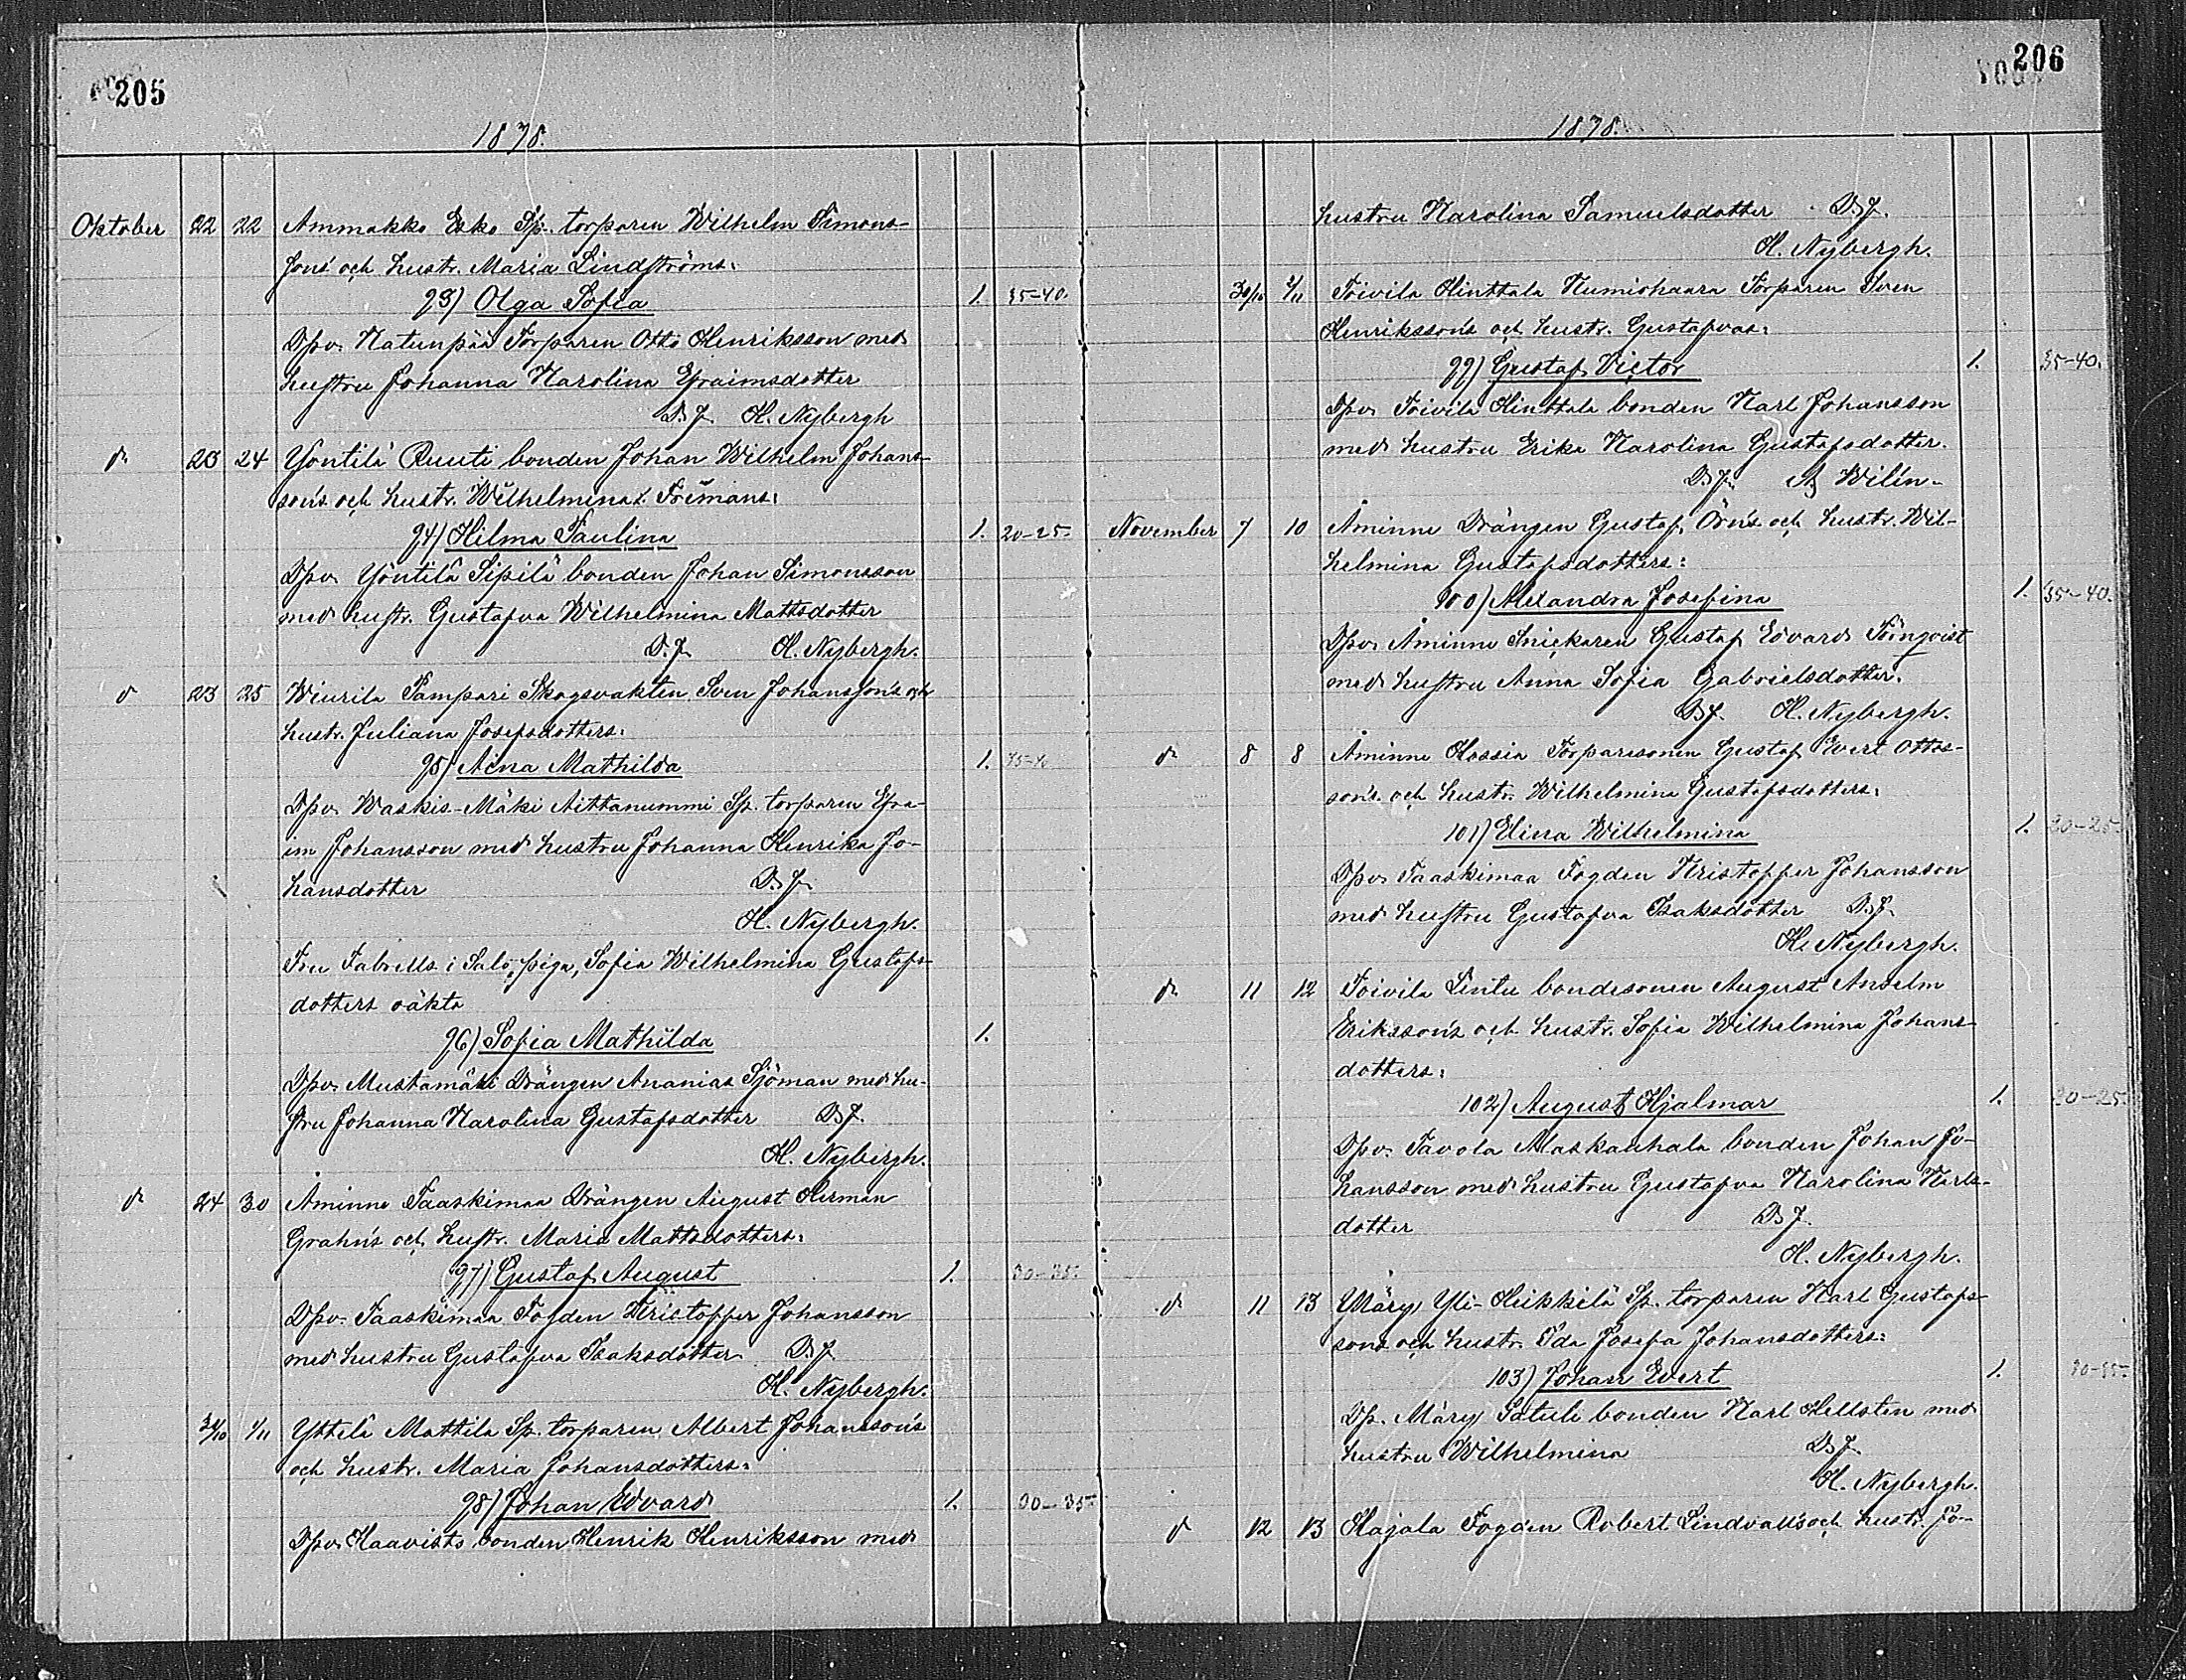 205
1878.
Oktober 22 22 Ammakko Esko Sp. torparen Wilhelm Simons-
sons och hustr. Maria Lindströms:
93) Olga Sofia 1. 35-40.
Dpv. Natunpää Torparen Otto Henriksson med
hustru Johanna Karolina Efraimsdotter
D. J. H. Nybergh
d 23 24 Yöntilä Ruuti bonden Johan Wilhelm Johans-
sons och hustr. Wilhelmina Frimans:
94) Hilma Paulina 1. 20-25.
Dpv. Yöntilä Sipilä bonden Johan Simonsson
med hustr. Gustafva Wilhelmina Mattsdotter
D. J. H. Nybergh.
d 23 25 Wiurila Pampari Skogsvakten Sven Johanssons och
hustr. Juliana Josefsdotters:
95) Aina Mathilda 1. 35-40
Dpv. Waskis-Mäki Aittanummi Sp. torparen Efra-
im Johansson med hustru Johanna Henrika Jo-
hansdotter D. J.
H. Nybergh.
Fru Fabrells i Salo, piga, Sofia Wilhelmina Gustafs-
dotters oäkta
96) Sofia Mathilda 1.
Dpv. Mustamäki Drängen Ananias Sjöman med hu-
stru Johanna Karolina Gustafsdotter D. J.
H. Nybergh.
d 24 30 Åminne Taaskimaa Drängen August Herman
Grahn's och hustr. Maria Mattsdotters:
97) Gustaf August 1. 30-35.
Dpv. Taaskimaa Fogden Kristoffer Johansson
med hustru Gustafva Isaksdotter D. J.
H. Nybergh.
31/10 1/11 Yttelä Mattila Sp. torparen Albert Johansson's
och hustr. Maria Johansdotters:
98) Johan Edvard 1. 30-35
Dpv. Haavisto bonden Henrik Henriksson med
206
1878.
hustru Karolina Samuelsdotter D. J.
H. Nybergh.
30/10 /11 Toivila Hinttala Kumiohaara Torparen Sven
Henrikssons och hustr. Gustafvas:
99) Gustaf Victor 1. 35-40.
Dpv. Toivila Hinttala bonden Karl Johansson
med hustru Erika Karolina Gustafsdotter.
D. J. Wilén
November 7 10 Åminne Drängen Gustaf Örn's och hustr. Wil-
helmina Gustafsdotters:
100) Alexandra Josefina 1. 35-40.
Dpv. Åminne Snickaren Gustaf Edvard Törnqvist
med hustru Anna Sofia Gabrielsdotter.
D. J. H. Nybergh.
d 8 8 Åminne Hossia Torparesonen Gustaf Evert Ottos-
sons och hustr. Wilhelmina Gustafsdotters:
101) Elina Wilhelmina 1. 20-25
Dpv. Taaskimaa Fogden Kristoffer Johansson
med hustru Gustafva Isaksdotter D. J.
H. Nybergh.
d 11 12 Toivila Lintu bondesonen August Anselm
Erikssons och hustr. Sofia Wilhelmina Johans-
dotters:
102) August Hjalmar 1. 20-25.
Dpv. Tavola Maskauhala bonden Johan Jo-
hansson med hustru Gustafva Karolina Karls-
dotter D. J.
H. Nybergh.
d 11 13 Märy Yli-Heikkilä Sp. torparen Karl Gustafs-
sons och hustr. Ida Josefa Johansdotters:
103) Johan Evert 1. 30-35
Dp. Märy Satuli bonden Karl Hellsten med
hustru Wilhelmina D. J.
H. Nybergh.
d 12 13 Hajala Fogden Robert Lindvall's och hustr. Jo-